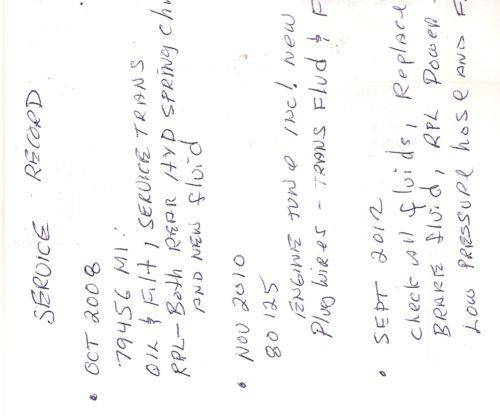 SERVICE RECORD
• OCT 2008
79456 MI.
OIL & Filt, SERVICE TRANS
RPL-Both REAR HYD SPRING Ch
AND NEW fluid
• NOV 2010
80 125
ENGINE TUNE INCL. NEW
Plug wires - TRANS Fluid & F
• SEPT 2012
Check all fluids, Replace
BRAKE fluid, RPL Power
Low PRESSURE hose AND F